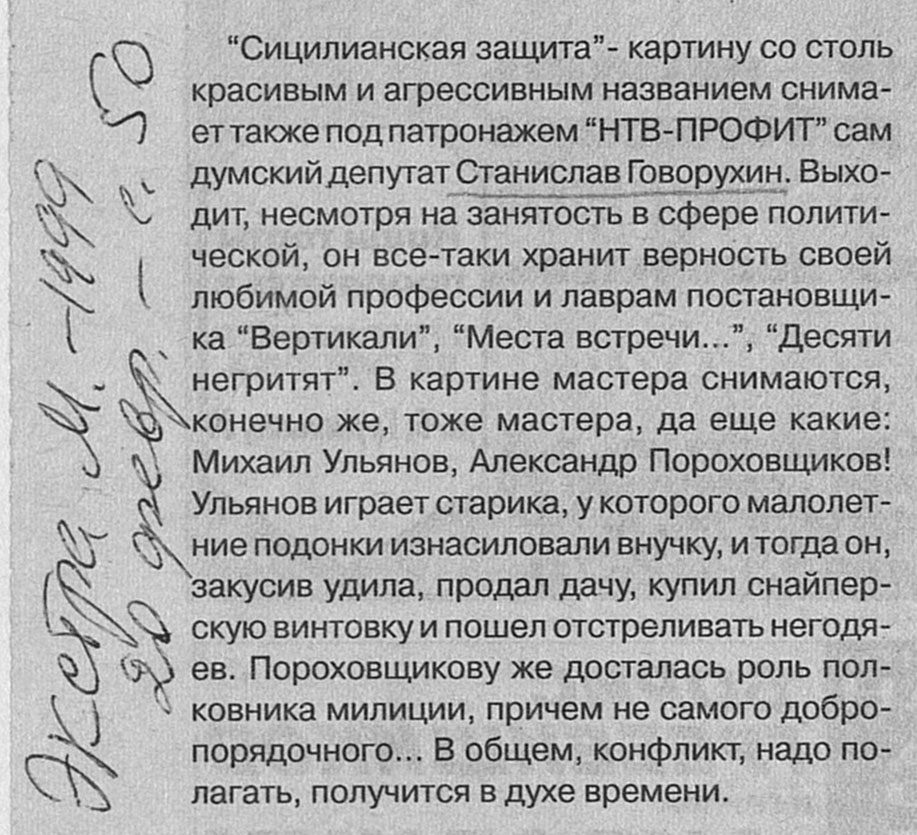 “Сицилианская защита”- картину со столь
красивым и агрессивным названием снима-
ет также под патронажем “НТВ-ПРОФИТ” сам
думский депутат Станислав Говорухин. Выхо-
дит, несмотря на занятость в сфере полити-
ческой, он все-таки хранит верность своей
любимой профессии и лаврам постановщи-
ка “Вертикали”, “Места встречи...”, “Десяти
негритят”. В картине мастера снимаются,
конечно же, тоже мастера, да еще какие:
Михаил Ульянов, Александр Пороховщиков!
Ульянов играет старика, у которого малолет-
ние подонки изнасиловали внучку, и тогда он,
закусив удила, продал дачу, купил снайпер-
скую винтовку и пошел отстреливать негодя-
ев. Пороховщикову же досталась роль пол-
ковника милиции, причем не самого добро-
порядочного... В общем, конфликт, надо по-
лагать, получится в духе времени.
Экстра М. – 1999
20 февр. – с. 50